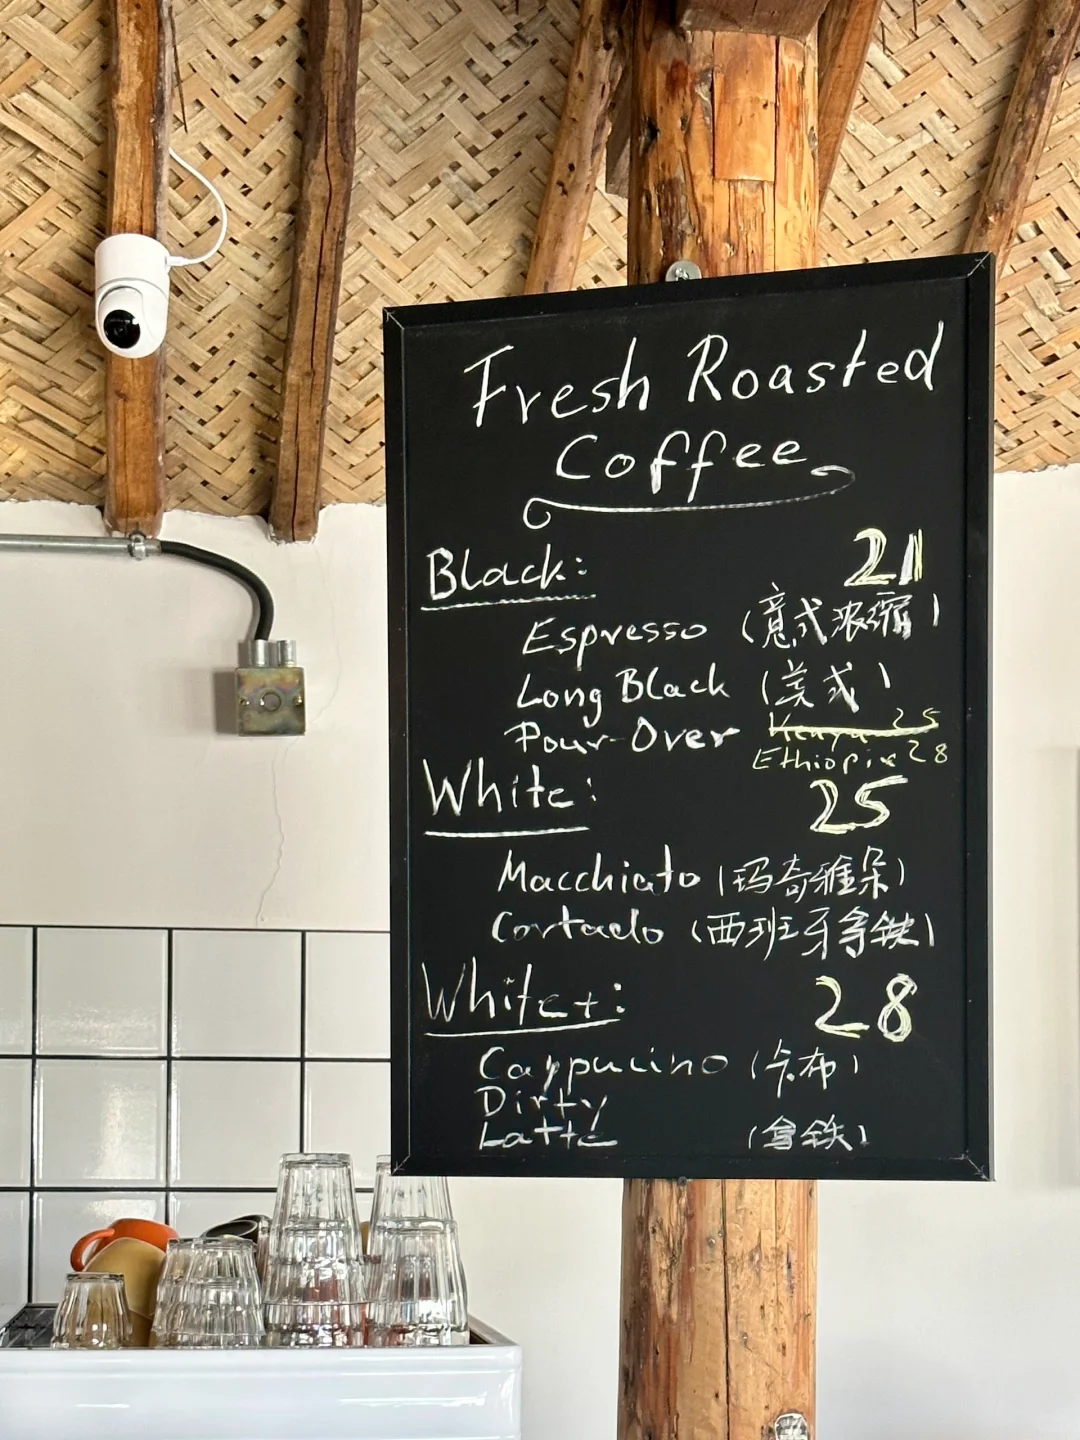 Fresh Roasted
Coffee
Black: 21
Espresso (意式浓缩)
Long Black (美式)
Pour-Over Kenya 25
Ethiopia 28
White: 25
Macchiato (玛奇雅朵)
Cortado (西班牙拿铁)
White+: 28
Cappucino (卡布)
Dirty
Latte (拿铁)